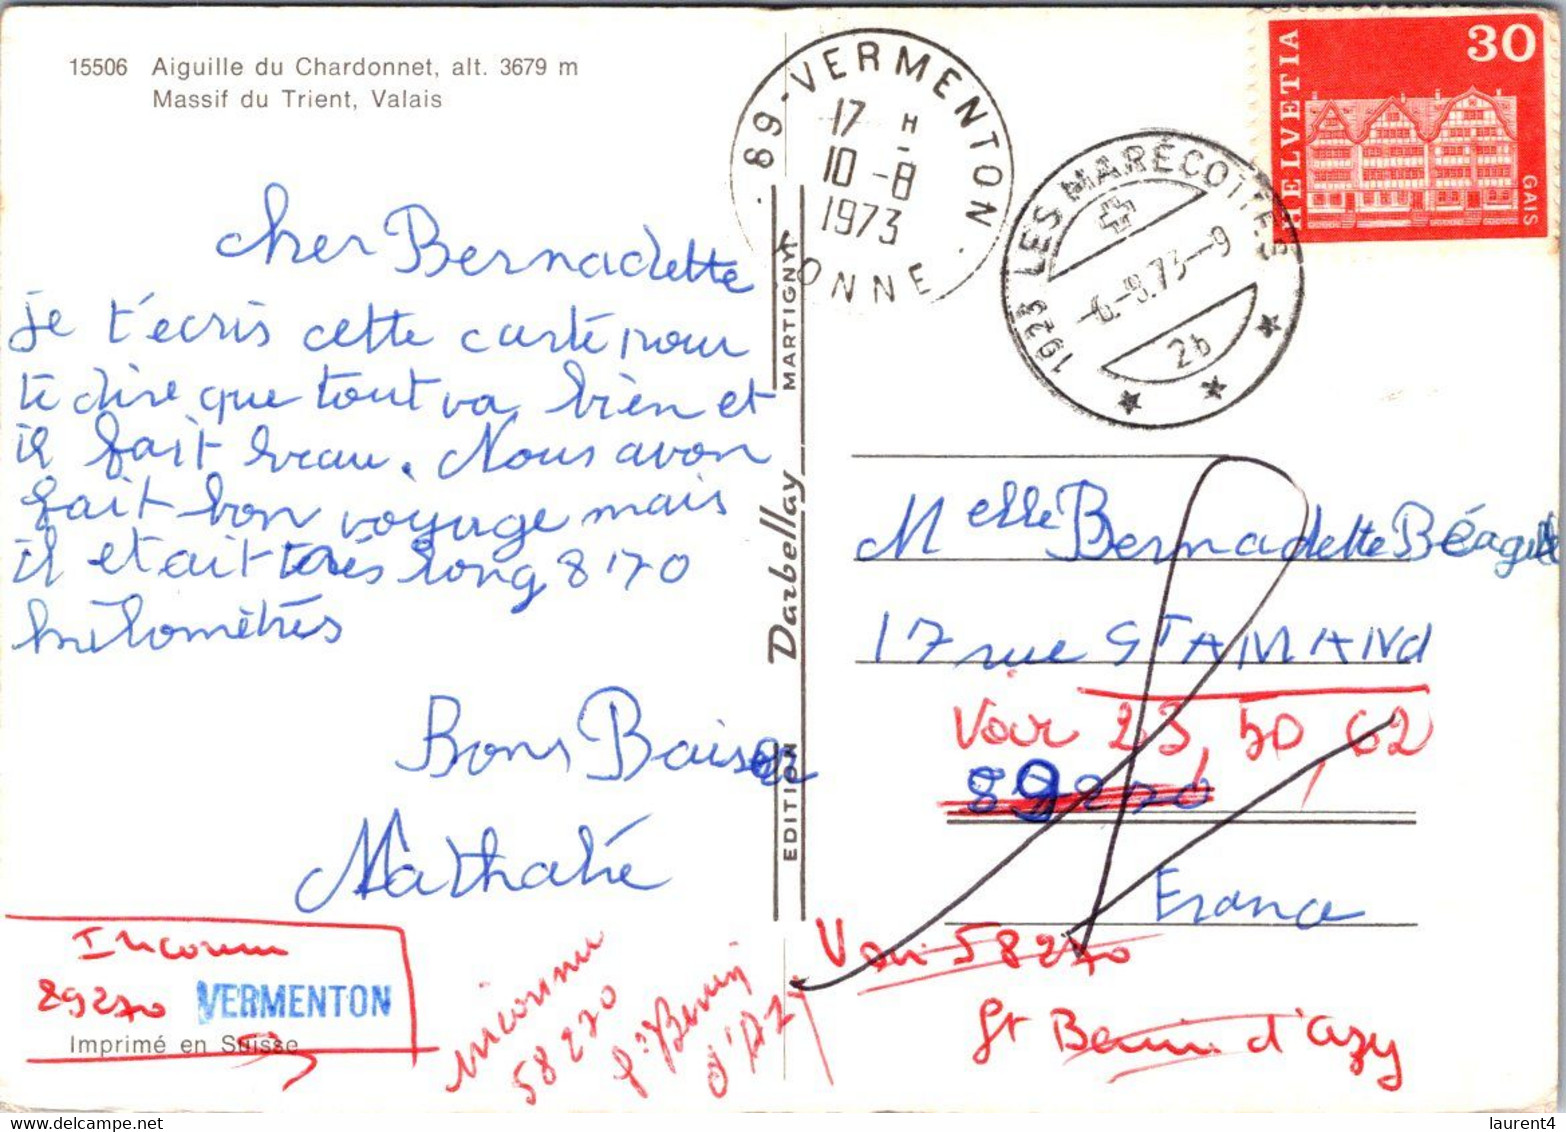 15506 Aiguille du Chardonnet, alt. 3679 m
Massif du Trient, Valais
cher Bernadette
je t'écris cette carte pour
te dire que tout va bien et
il fait beau. Nous avon
fait bon voyage mais
il etait très long 8170
kilomètres
Bons Baiser
Nathalie
Inconnu
89270 VERMENTON
Imprimé en Suisse
inconnu
58270
St Benin
d'Azy
EDITION Darbellay MARTIGNY
89-VERMENTON
17 H
10-8
1973
YONNE
1923 LES MARÉCOTTES
-6.-8.73-9
2b
HELVETIA
30
GAIS
Melle Bernadette
17 rue St AMANd
Voir 23, 50, 62
89270
France
Voir 58270
St Benin d'azy
laurent4